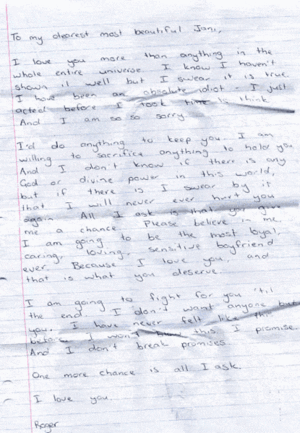 To my dearest most beautiful Jani,
I love you more than anything in the
whole entire universe. I know I haven't
shown it well but I swear it is true.
I have been an absolute idiot - I just
acted before I took time to think
And I am so so sorry.
I'd do anything to keep you. I am
willing to sacrifice anything to hold you
And I don't know if there is any
God or divine power in this world,
but if there is I swear by it
that I will never ever hurt you
again. All I ask is that you give
me a chance. Please believe in me.
I am going to be the most loyal,
caring, loving, sensitive boyfriend
ever. Because I love you, and
that is what you deserve.
I am going to fight for you 'til
the end. I don't want anyone but
you. I have never felt like this
before. I won't this I promise.
And I don't break promises.
One more chance is all I ask
I love you.
Roger